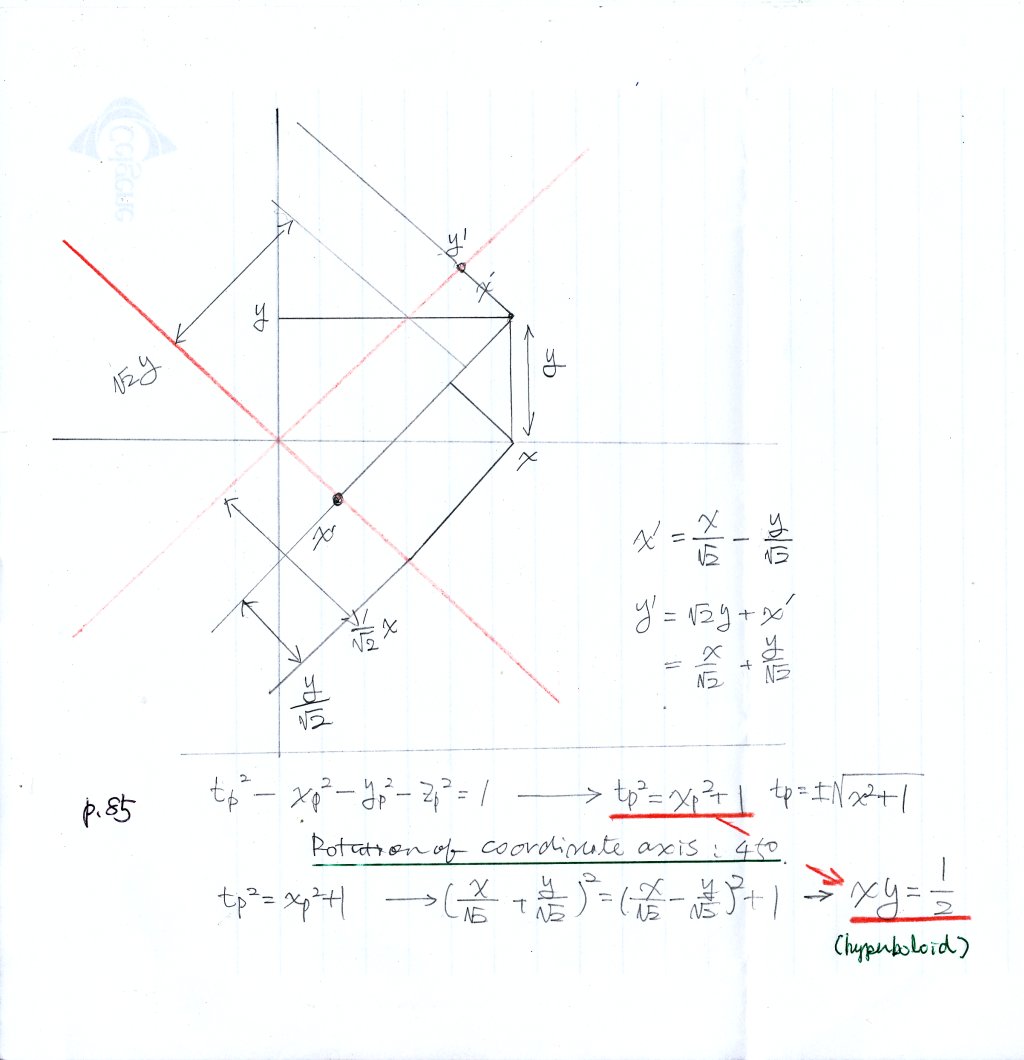 y'
x'
y
y
√2 y
x
x'
1/√2 x
y/√2
x' = x/√2 − y/√2
y' = √2 y + x'
= x/√2 + y/√2
p.85
tp² − xp² − yp² − zp² = 1 → tp² = xp² + 1 tp = ±√x²+1
Rotation of coordinate axis : 45°
tp² = xp² + 1 → (x/√2 + y/√2)² = (x/√2 − y/√2)² + 1 → xy = 1/2
(hyperboloid)